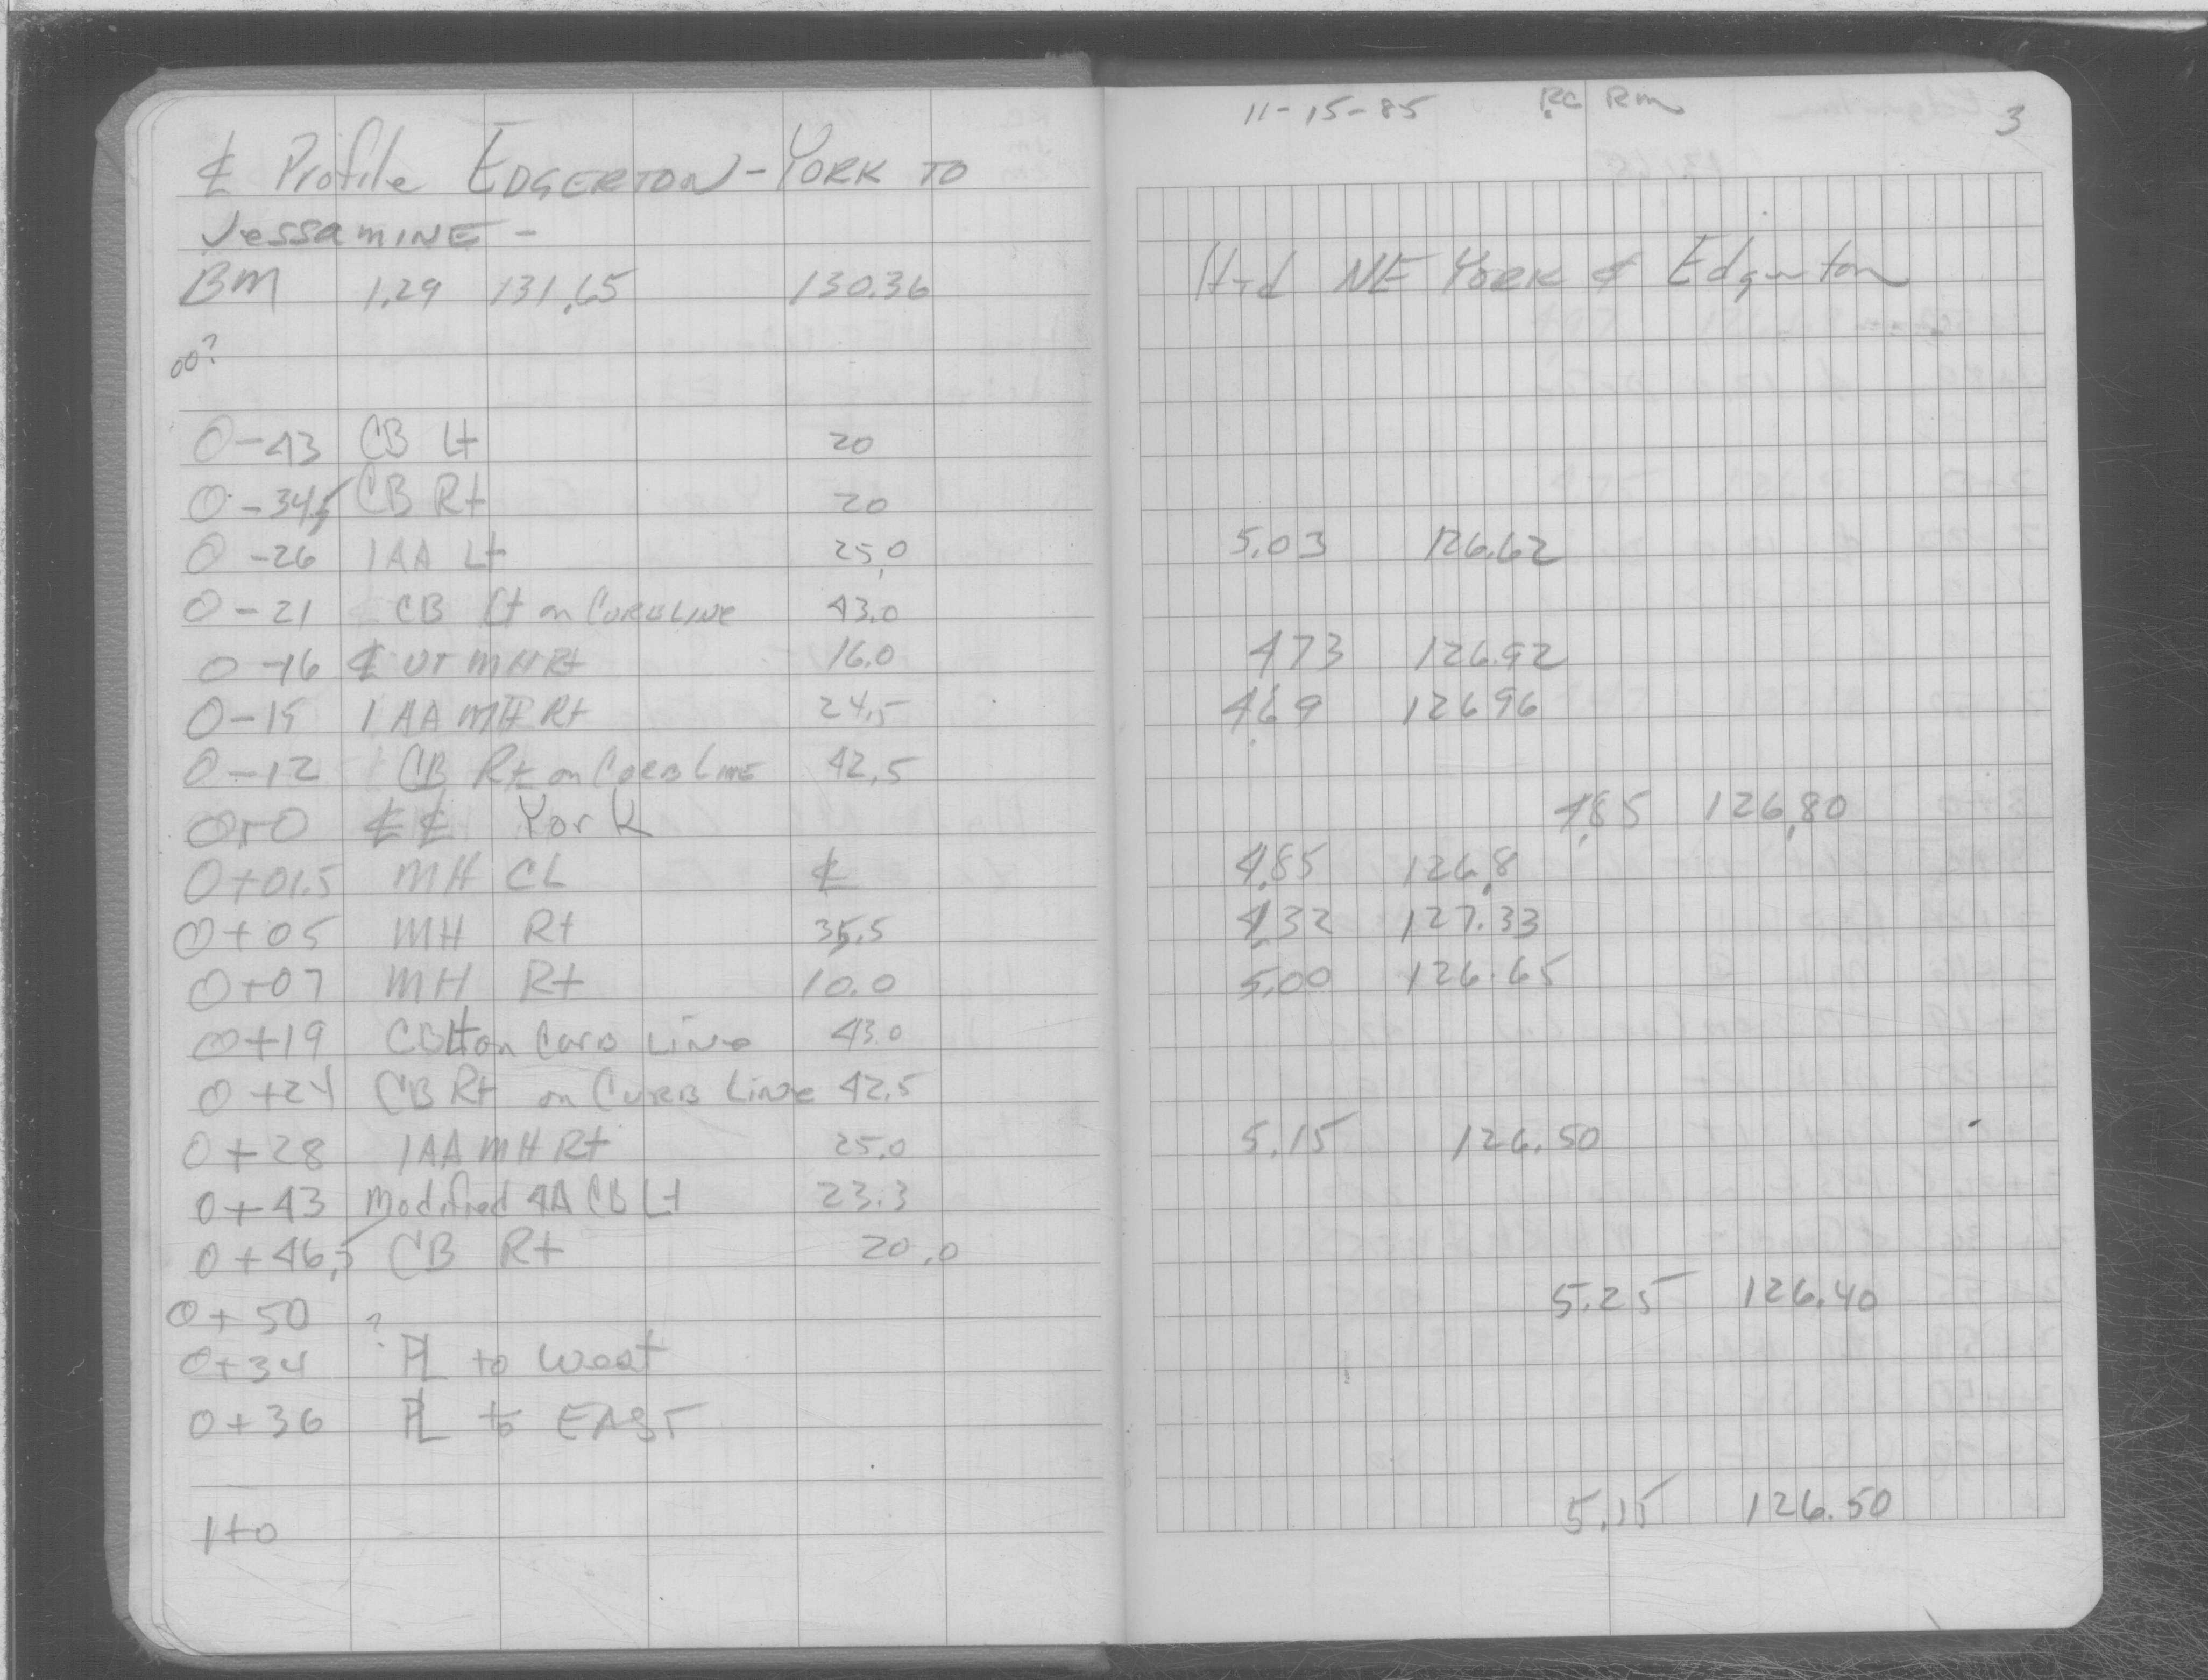 11-15-85 RC Rm 3
℄ Profile EDGERTON - YORK TO
JessamINE -
BM 1.29 131.65 130.36 Hyd NE York & Edgerton
00?
0-43 CB Lt 20
0-34.5 CB Rt 20
0-26 1AA Lt 25.0 5.03 126.62
0-21 CB Lt on CURB LINE 43.0
0-16 ℄ UT MH Rt 16.0 4.73 126.92
0-15 1AA MH Rt 24.5 4.69 126.96
0-12 CB Rt on CURB LINE 42.5
0+0 ℄ ℄ York 4.85 126.80
0+01.5 MH CL ℄ 4.85 126.8
0+05 MH Rt 35.5 4.32 127.33
0+07 MH Rt 10.0 5.00 126.65
0+19 CB Lt on Curb Line 43.0
0+24 CB Rt on CURB LINE 42.5
0+28 1AA MH Rt 25.0 5.15 126.50
0+43 Modified 4A CB Lt 23.3
0+46.5 CB Rt 20.0
0+50 ? 5.25 126.40
0+34 PL to West
0+36 PL to EAST
1+0 5.15 126.50